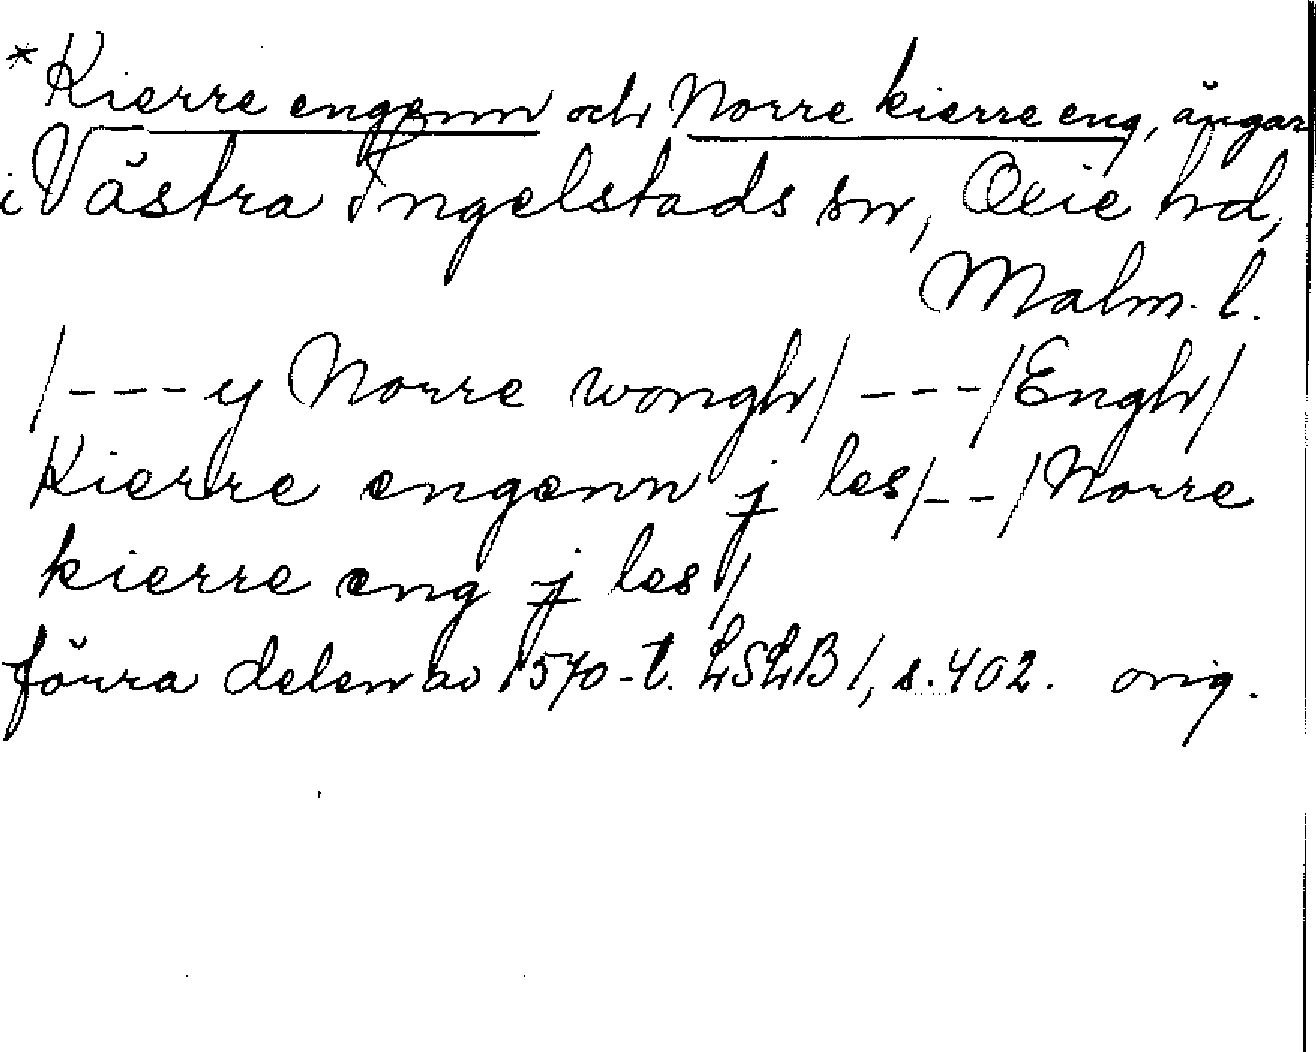 * Kierre engenn och Norre kierre eng, ängar
i Västra Ingelstads sn, Oxie hd,
Malm. l.
/---y Norre wongh/ ---/Engh/
Kierre engenn j les/--/Norre
kierre eng j les/
förra delen av 1570-t. LSLB 1, s. 402. orig.